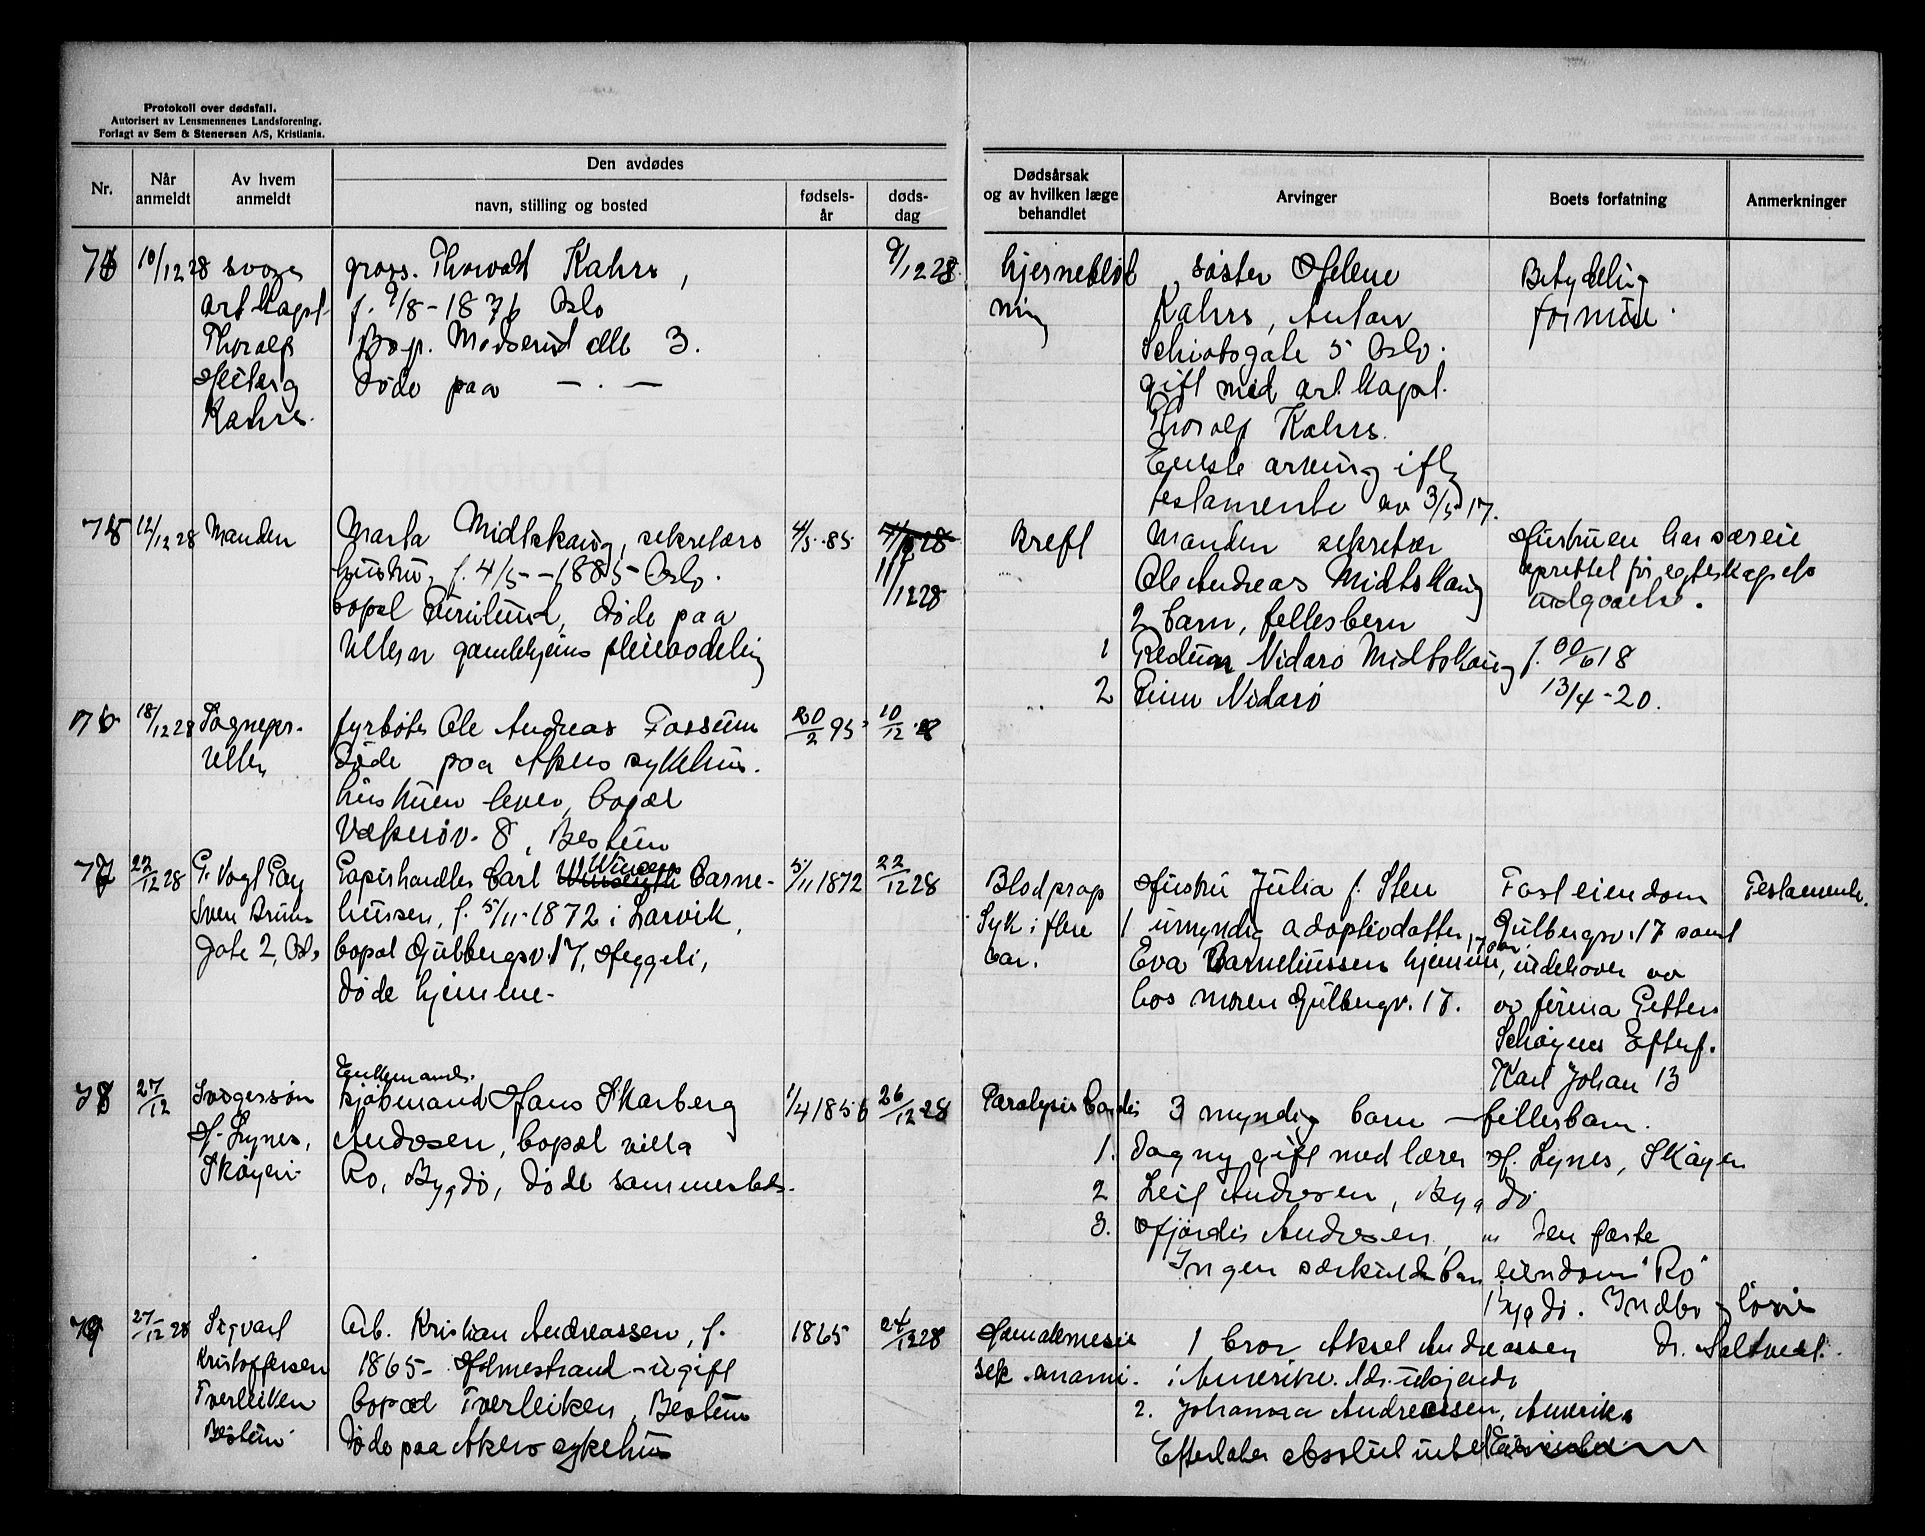 Protokoll over dødsfall.
Autorisert av Lensmennenes Landsforening.
Forlagt av Sem & Stenersen A/S, Kristiania.
Nr.
Når anmeldt
Av hvem anmeldt
Den avdødes
navn, stilling og bosted
fødsels-år
døds-dag
Dødsårsak og av hvilken læge behandlet
Arvinger
Boets forfatning
Anmerkninger
10/12 28
svoger
art. kapt.
Thoralf
Heiberg
Kahrs.
gross. Thorvald Kahrs,
f. 9/8 - 1876 Oslo
Bop. Madserud allé 3.
Døde paa — . —
9/12 28.
hjerneblød
ning
søster Helene
Kahrs, Anton
Schiøtsgate 5 Oslo.
gift med art. kapt.
Thoralf Kahrs.
Eneste arving ifl.
testamente av 3/5 17.
Betydelig
formue.
75
12/12 28
Manden
Marta Midtskaug, sekretærs
hustru, f. 4/5 - 1885 Oslo.
bopæl Furulund, døde paa
Ullern gamlehjems pleieavdeling
4/5 .85.
11/12 28
Kreft
Manden sekretær
Ole Andreas Midtskaug
2 barn, fellesbarn
1 Reidun Nidarø Midtskaug f. 30/6 18
2 Finn Nidarø 13/4 - 20.
Hustruen har særeie
oprettet før egteskapets
indgaaelse.
76
18/12 28
Sogneprs.
Ullern
fyrbøter Ole Andreas Fossum
Døde paa Akers sykehus.
hustruen lever, bopæl
Vækerøv. 8, Bestum
20/2 95
10/12 28
77
22/12 28
G. Vogt Fay
Sven Bruns
Gate 2, Oslo
Papirhandler Carl Wincen Carne-
liussen, f. 5/11 - 1872 i Larvik,
bopæl Gulbergsv. 17, Heggeli,
døde hjemme.
5/11 1872
22/12 28
Blodprop
Syk i flere
aar.
Hustru Julia f. Sten
1 umyndig adoptivdatter, 17 aar
Eva Corneliussen hjemme,
hos moren Gulbergv. 17.
Fast eiendom
Gulbergsv. 17 samt
indehaver av
av firma Petter
Schøyens Efterf.
Karl Johan 13
Testamente.
78
27/12
Svigersøn
H. Lynes,
Skøyen
Enkemand.
Kjøbmand Hans Skarberg
Andresen, bopæl villa
Ro, Bygdø, døde sammesteds.
1/4 1856
26/12 28
Paralysis Cordis
3 myndig barn — fellesbarn.
1. Dagny gift med lærer H. Lynes, Skøyen
2 Leif Andresen, Bygdø
3. Hjørdis Andresen, " Den faste
Ingen særkuldsbarn eiendom "Ro"
Bygdø. Indbo og løsøre
79
27/12 28
Sigvart
Kristoffersen
Tverleiken
Bestum
Arb. Kristian Andreassen, f.
1865 - Holmestrand - ugift
bopæl Tverleiken, Bestum
Døde paa Akers sykehus
1865
24/12 28
Hæmatemesis
sek. anæmi.
1 bror Aksel Andreassen Dr. Saltvedt.
i Amerika. Adr. ukjendt
2. Johanna Andreassen, Amerika
Efterlater absolut intet